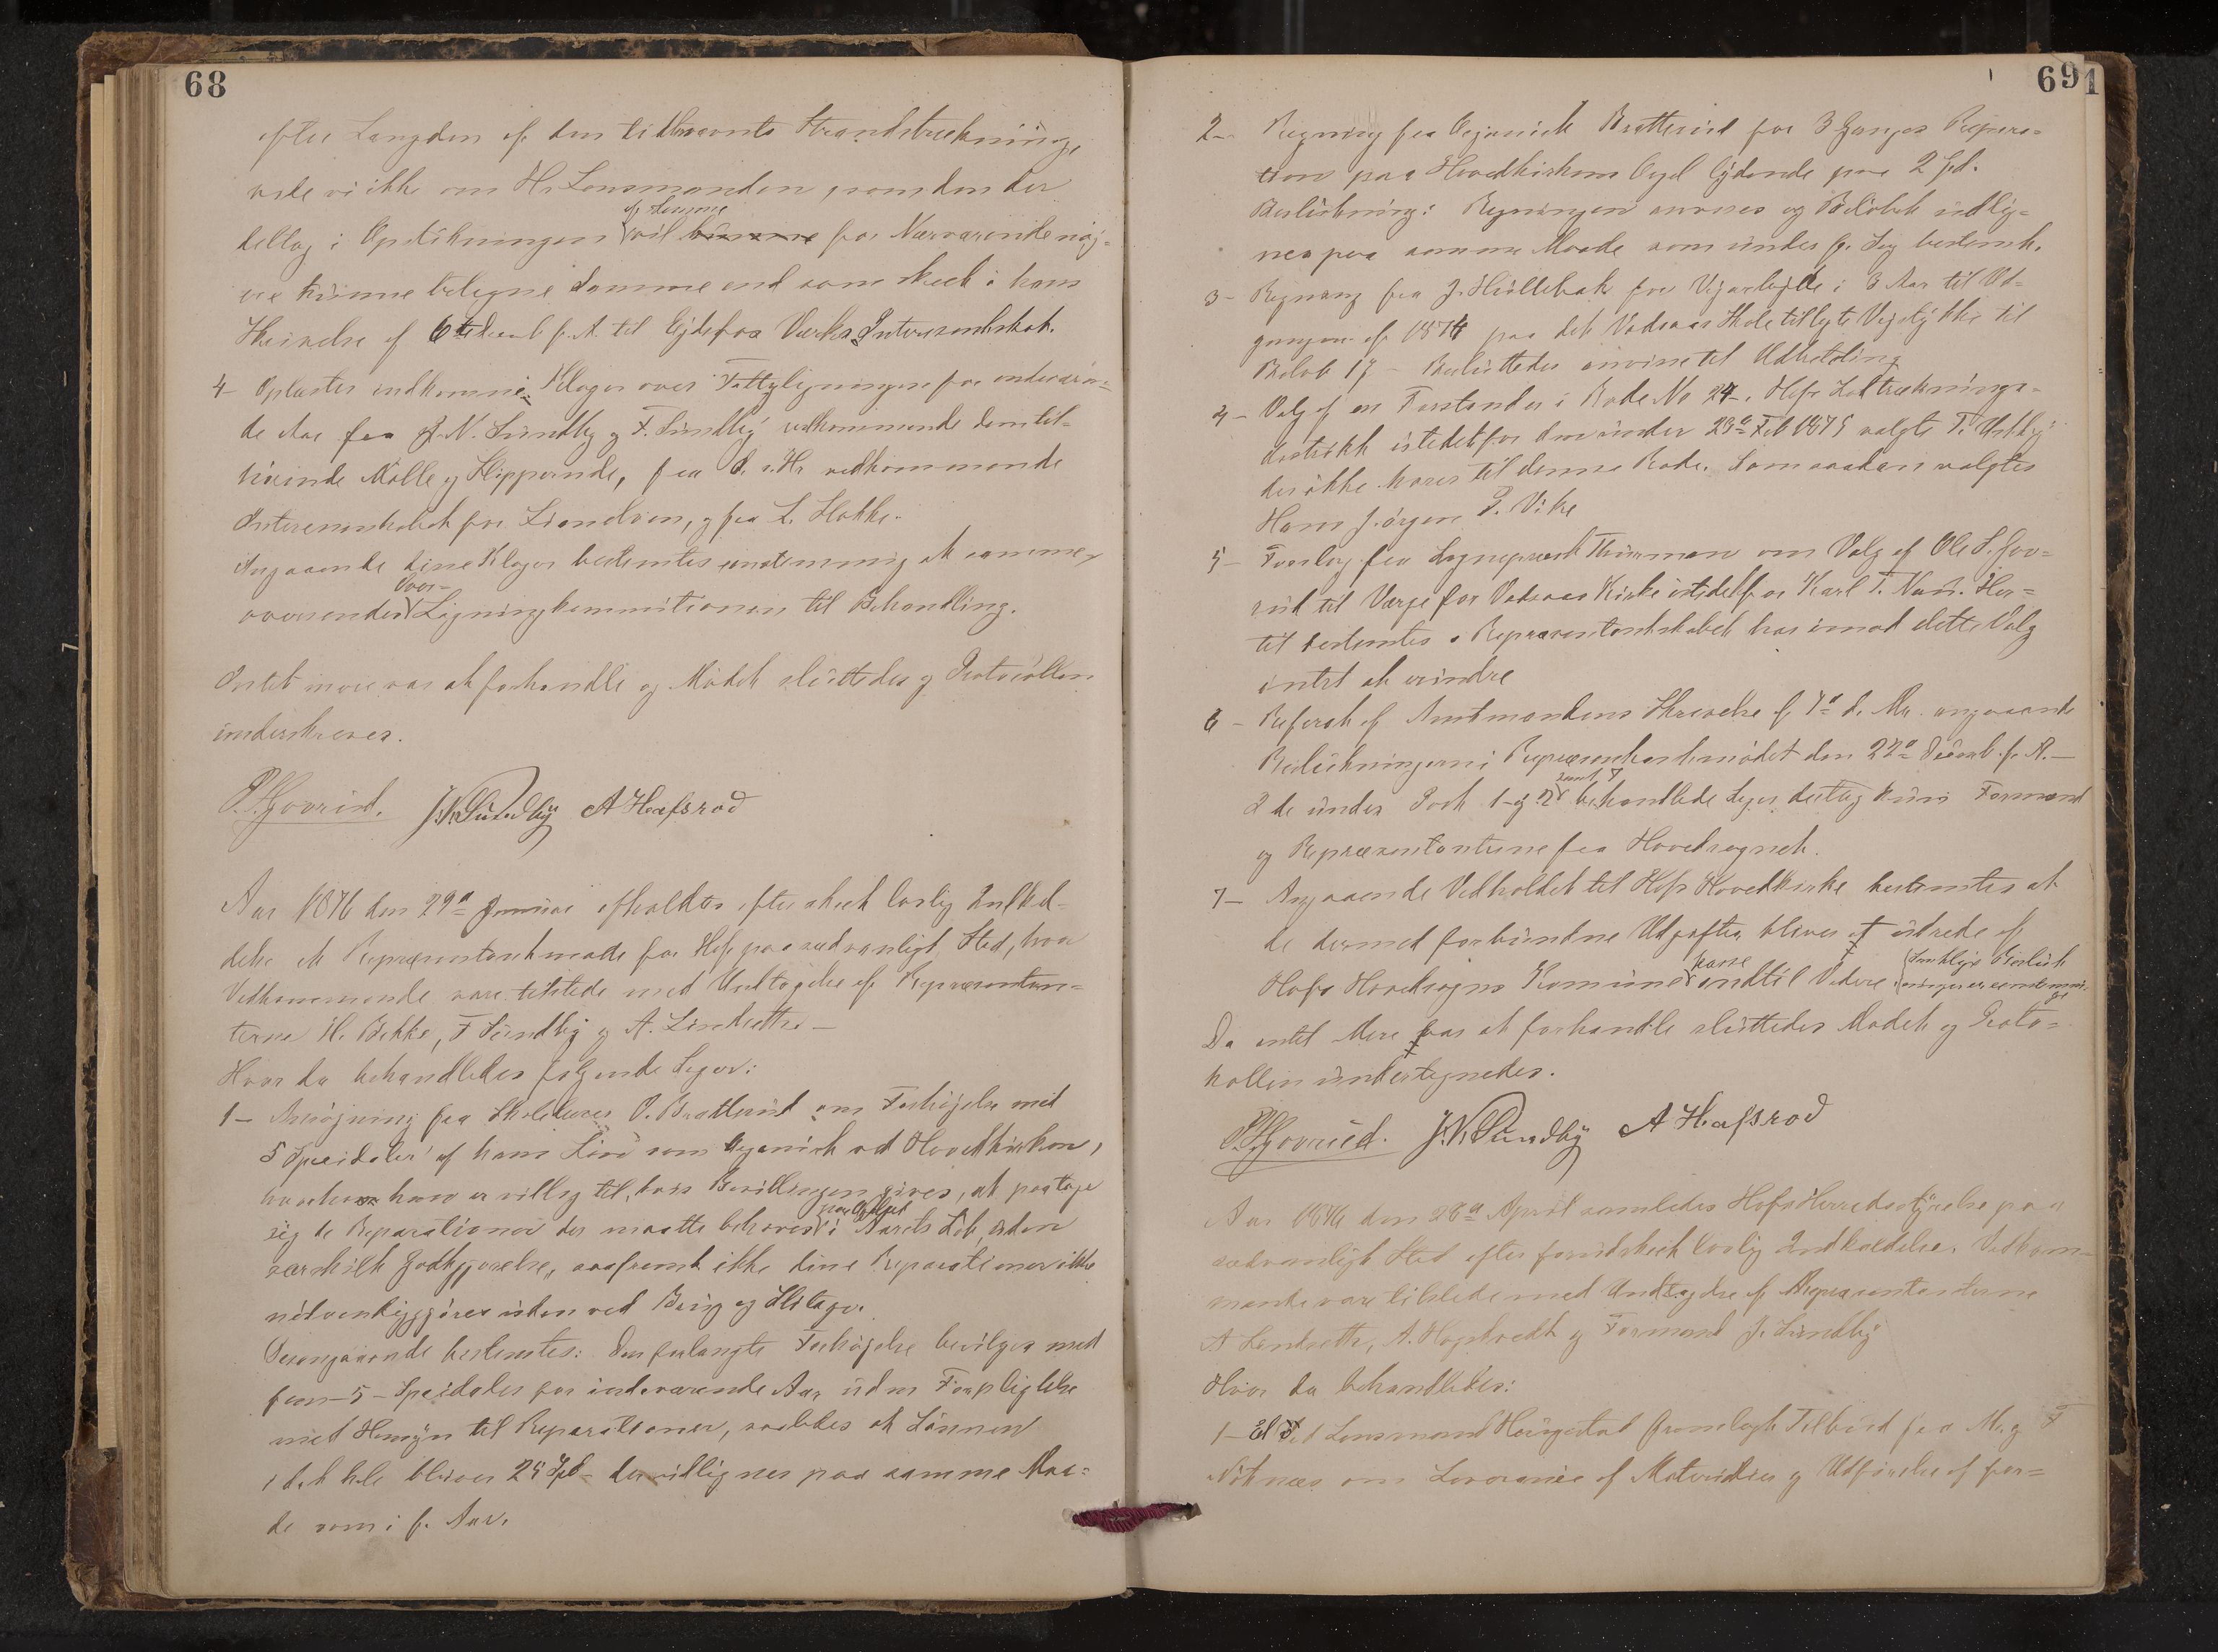 68
efter Længden af den tidtnævnte Strandstrækning,
vide vi ikke om Hr Lensmanden, som den der
deltog i Opstikningen af samme vil kunne for Nærværende nøj-
ere kunne betegne samme end som skeet i hans
Skrivelse af 6te f. A. til Ejdsfos Værks Interesentskab.
4- Oplæstes indkomne Klager over Fattigligningen for indeværen-
de Aar fra J. N. Sundby og F. Sundby vedkommende dem til-
hørende Mølle og Hippesinde, fra vedkommende
Interesentskabet for og fra L. Hokke.
Angaaende disse Klager bestemtes enstemmig at samme
oversendes Over-
Ligningskommitionen til Behandling.
Intet mere var at forhandle og Mødet sluttedes og Protocollen
underskreves.
P. Hjovrud. J. N. Sundby A Hæfsrød
Aar 1876 den 29de Januar afholdtes efter skeet lovlig Indkal-
delse et Repræsentantmøde for Hof paa sædvanligt Sted, hvor
Vedkommende vare tilstede med Undtagelse af Repræsentan-
terne H. Bekke, F Sundby og A. Lindsethe -
Hvor da behandledes følgende Sager:
1- Ansøgning fra Skolelærer O. Bratterud om Forhøjelse med
5 Specidaler af hans Løn som Organist ved Hovedkirken,
hvorhos han er villig til, hvis Bevillingen gives, at paatage
sig de Reparationer der maatte behøves paa Orglet i Aarets Løb, uden
særskilt Godtgjørelse, saafremt ikke disse Reparationer ikke
nødvendiggjøres uden ved Brug og Slitage.
Desangaaende bestemtes: Den forlangte Forhøjelse bevilges med
fem - 5 - Specidaler for indeværende Aar, uden Forpligtelse
med Hensyn til Reparationer, saaledes at Lønnen
i det hele bliver 25 Spd - der udlignes paa samme Maa-
de som i f. Aar.
691
2- Regning fra Organist Bratterud for 3 Ganges Repera-
tion paa Hovedkirkens Orgel lydende paa 2 Spd.
Beslutning: Regningen anvises og Beløbet udlig-
nes paa samme Maade som under f. Sag bestemt.
3- Regning fra J. Hullebak for Vejarbejde i 3 Aar til Ud-
gangen af 1874 paa det Vadsaas Skole tillagte Vejstykke til
Beløb 17 - Besluttedes anvine til Udbetaling
4- Valg af en Forstander i Rode No 24. Hofs Lodtræknings-
destrikt istedetfor den under 23de Feb 1875 valgte T. Ushby
der ikke hører til denne Rode. Som saadan valgtes
Hans Jørgen P. Vike
5- Forslag fra Sogneprest Thurman om Valg af Ole S. Gov-
rud til Værge for Vadsaas Kirke istedetfor Karl T. Nord. Her-
til bestemtes: Repræsentantskabet har imod dette Valg
intet at erindre
6- Referat af Amtmandens Skrivelse af 7de d. Md. angaaende
Beslutningerne i Repræsentantmødet den 27de Decemb. f. A. -
I de under Post 1- og 2 samt 7 behandlede Sager deltog kun Formand
og Repræsentanterne fra Hovedsognet.
7- Angaaende Vedholdet til Hofs Hovedkirke bestemtes at
de dermed forbundne Udgifter bliver at udrede af
Hofs Hovedsogns Komune kasse indtil Videre. Samtlige Beslut-
ninger er eenstemmi-
ge
Da intet Mere var at forhandle sluttedes Mødet og Proto-
kollen undertegnedes.
P. Hjovrud. J. N. Sundby A Hæfsrød
Aar 1876 den 28de April samledes Hofs Herredsstyrelse paa
sædvanligt Sted efter forudskeet lovlig Indkaldelse. Vedkom-
mende vare tilstede med Undtagelse af Repræsentanterne
A Lindsethe, A. Hogstvedt og Formand J. Sundby
Hvor da behandledes:
1- Et Ved Lensmand Haugestad fremlagt Tilbud fra M. og F
Nøtnæs om Leverance af Materialier og Udførelse af for-